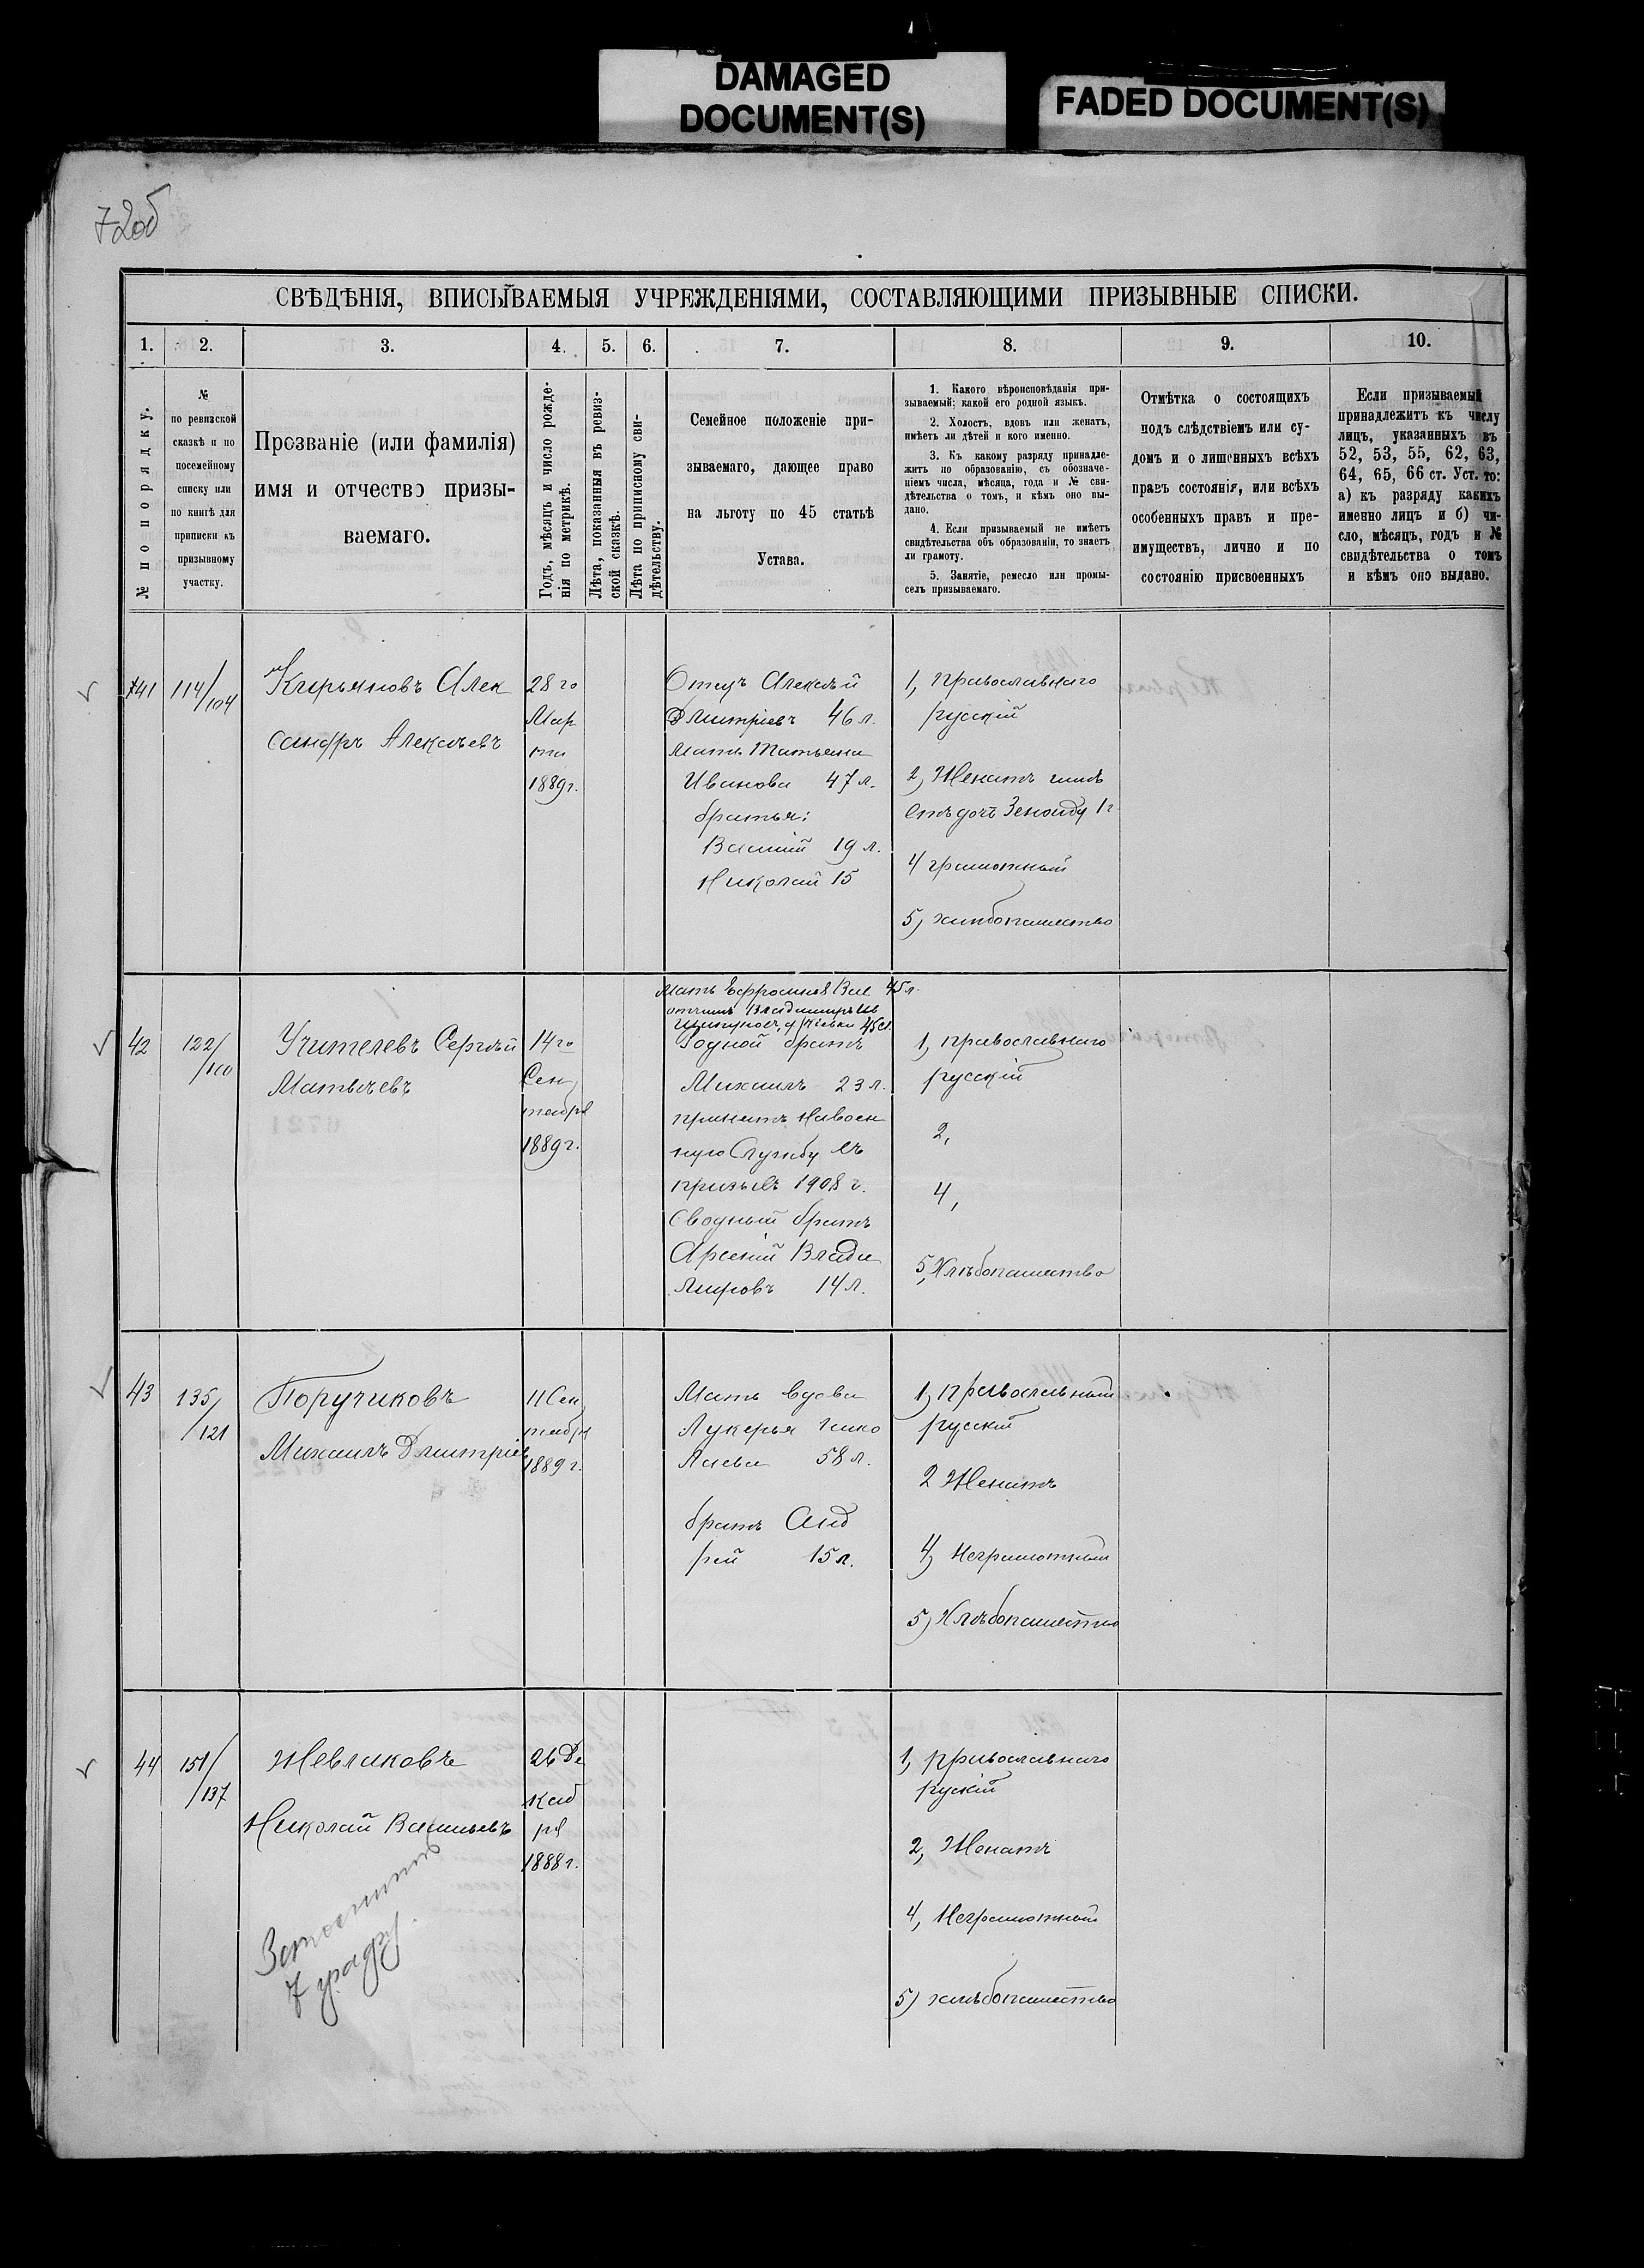 DAMAGED
DOCUMENT(S)
FADED DOCUMENT(S)
72об
СВѢДѢНІЯ, ВПИСЫВАЕМЫЯ УЧРЕЖДЕНІЯМИ, СОСТАВЛЯЮЩИМИ ПРИЗЫВНЫЕ СПИСКИ.
1. 2. 3. 4. 5. 6. 7. 8. 9. 10.
№ по порядку.
№
по ревизской
сказкѣ и по
посемейному
списку или
по книгѣ для
приписки къ
призывному
участку.
Прозваніе (или фамилія)
имя и отчество призы-
ваемаго.
Годъ, мѣсяцъ и число рожде-
нія по метрикѣ.
Лѣта, показанныя въ ревиз-
ской сказкѣ.
Лѣта по приписному сви-
дѣтельству.
Семейное положеніе при-
зываемаго, дающее право
на льготу по 45 статьѣ
Устава.
1. Какого вѣроисповѣданія при-
зываемый; какой его родной языкъ.
2. Холостъ, вдовъ или женатъ,
имѣетъ ли дѣтей и кого именно.
3. Къ какому разряду принадле-
житъ по образованію, съ обозначе-
ніемъ числа, мѣсяца, года и № сви-
дѣтельства о томъ, и кѣмъ оно вы-
дано.
4. Если призываемый не имѣетъ
свидѣтельства объ образованіи, то знаетъ
ли грамоту.
5. Занятіе, ремесло или промы-
селъ призываемаго.
Отмѣтка о состоящихъ
подъ слѣдствіемъ или су-
домъ и о лишенныхъ всѣхъ
правъ состоянія, или всѣхъ
особенныхъ правъ и пре-
имуществъ, лично и по
состоянію присвоенныхъ
Если призываемый
принадлежитъ къ числу
лицъ, указанныхъ въ
52, 53, 55, 62, 63,
64, 65, 66 ст. Уст. то:
а) къ разряду какихъ
именно лицъ и б) чи-
сло, мѣсяцъ, годъ и №
свидѣтельства о томъ
и кѣмъ оно выдано.
41
114/104
Кирьяновъ Алек
сандръ Алексѣевъ
28го
Мар
та
1889г.
Отецъ Алексѣй
Дмитріевъ 46 л.
Мать Татьяна
Иванова 47 л.
братья:
Василій 19 л.
Николай 15
1, православнаго
русскій
2, Женатъ имѣ
етъ дочь Зеноиду 1г
4 грамотный
5, хлѣбопашество
42
122/
Учителевъ Сергѣй
Матвѣевъ
14го
Сен
тября
1889г.
Мать Ефросинья Вас. 45 л.
отчимъ Владиміръ Ив
Родной братъ
Михаилъ 23 л.
принятъ на воен
ную Службу въ
призывъ 1908 г.
Сводный братъ
Арсеній Влади
мировъ 14 л.
1, православнаго
русскій
2,
4,
5, Хлѣбопашество
43
135/121
Поручиковъ
Михаилъ Дмитріев
11 Сен
тября
1889 г.
Мать вдова
Лукерья Нико
лаева 58 л.
братъ Анд
рей 15 л.
1, православный
русскій
2 Женатъ
4, Неграмотный
5, Хлѣбопашество
44
151/137
Жевлаковъ
Николай Васильевъ
26 Де
каб
ря
1888 г.
1, православнаго
рускій
2, Женатъ
4, Неграмотный
5, хлѣбопашество
7 графу.